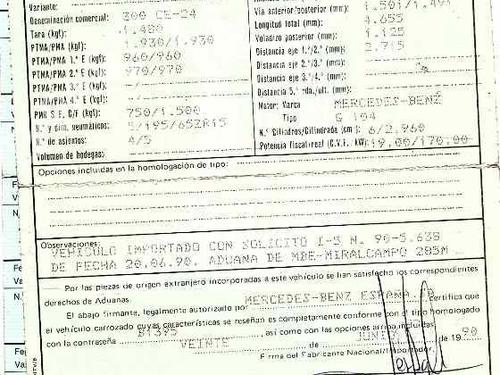 Variante:
Denominación comercial: 300 CE-24
Tara (kgf): 1.480
PTMA/PMA (kgf): 1.930/1.930
PTMA/PMA 1.ª E (kgf): 960/960
PTMA/PMA 2.ª E (kgf): 970/970
PTMA/PMA 3.ª E (kgf): -/-
PTMA/PMA 4.ª E (kgf): -/-
PMR S F. C/F (kgf): 750/1.500
N.º y dim. neumáticos: 5/195/65ZR15
N.º de asientos: 4/5
Volumen de bodegas:
Vía anterior/posterior (mm): 1.501/1.491
Longitud total (mm): 4.655
Voladizo posterior (mm): 1.125
Distancia eje 1.º/2.º (mm): 2.715
Distancia eje 2.º/3.º (mm):
Distancia eje 3.º/4.º (mm):
Distancia 5.ª rda./ult. (mm):
Motor: Marca MERCEDES-BENZ
Tipo G 104
N.º Cilindros/Cilindrada (cm): 6/2.960
Potencia fiscal/real (C.V.F. kW): 19,00/170,00
Opciones incluidas en la homologación de tipo:
Observaciones:
VEHICULO IMPORTADO CON SOLICITO I-5 N. 90-5.638
DE FECHA 20.06.90. ADUANA DE MDE-MIRALCAMPO 285M
Por las piezas de origen extranjero incorporadas a este vehículo se han satisfecho los correspondientes
derechos de Aduanas
El abajo firmante, legalmente autorizado por MERCEDES-BENZ ESPAÑA. Certifica que
el vehículo carrozado cuyas características se reseñan es completamente conforme con el tipo homologado
con la contraseña B1395, así como con las opciones arriba indicadas
VEINTE de JUNIO de 1990
Firma del Fabricante Nacional/Importador,